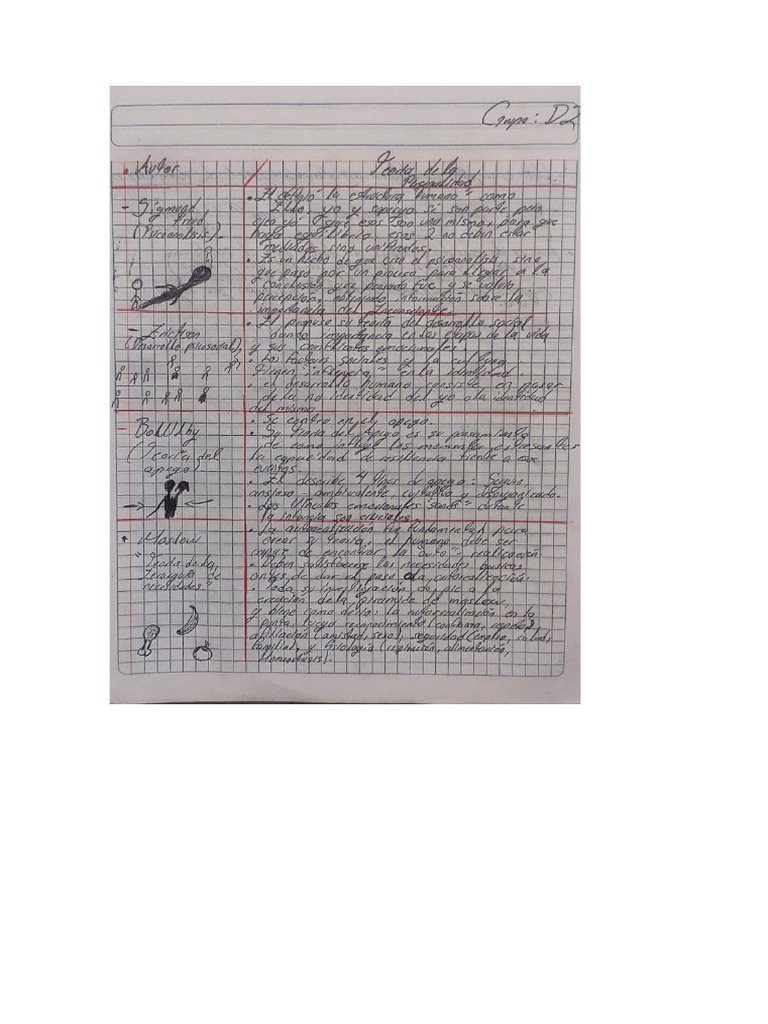 Grupo: D2
• Autor
Teoria de la
Personalidad
- Sigmund
Freud
(Psicoanalisis).
• El definio "la estructura humana" como
Ello, yo y superyo si son parte para
que haber equilibrio, esas 2 no deben estar
mediados, sino unificados.
• Es un hecho de que creo el psicoanalisis, sino
que paso por un proceso para llegar a la
conclusión que pensado fue y se volvio
percepción, obtiendo información sobre la
importancia del Inconsciente
- Erickson
(Desarrollo psicosocial)
• El propuso su teoria del desarrollo social
dando importancia en las etapas de la vida
y sus conflictos emocionales
• Los factores sociales y la cultura
tienen "influencia" en la identidad.
• el desarrollo humano consiste en pasar
de la no identidad del yo a la identidad
del mismo
- BoWlby
(Teoria del
apego)
• Se centro en el apego.
• Su teoria del Apego es su pensamiento
de como influye los momentos
la capacidad de resiliencia frente a esos
eventos.
• El describe 4 tipos de apego: Seguro
ansioso - ambivalente, evitativo y desorganizado.
• Los Vínculos emocionales durante
la infancia son cruciales.
• Maslow
"Teoria de la
Jerarquia de
necesidades"
• La autorealización fue fundamental para
crear su teoria, el humano debe ser
capaz de encontrar la auto - realización.
• Deben satisfacerse las necesidades basicas
antes de dar el paso a la autorealización.
• Toda su investigación da pie a la
creación de la piramide de maslow,
y tiene como dentro: la autorealización en la
punta, luego reconocimiento (confianza, respeto),
afiliación (amistad, sexo), seguridad (empleo, salud,
familia), y fisiología (respiración, alimentación,
Homeostasis).